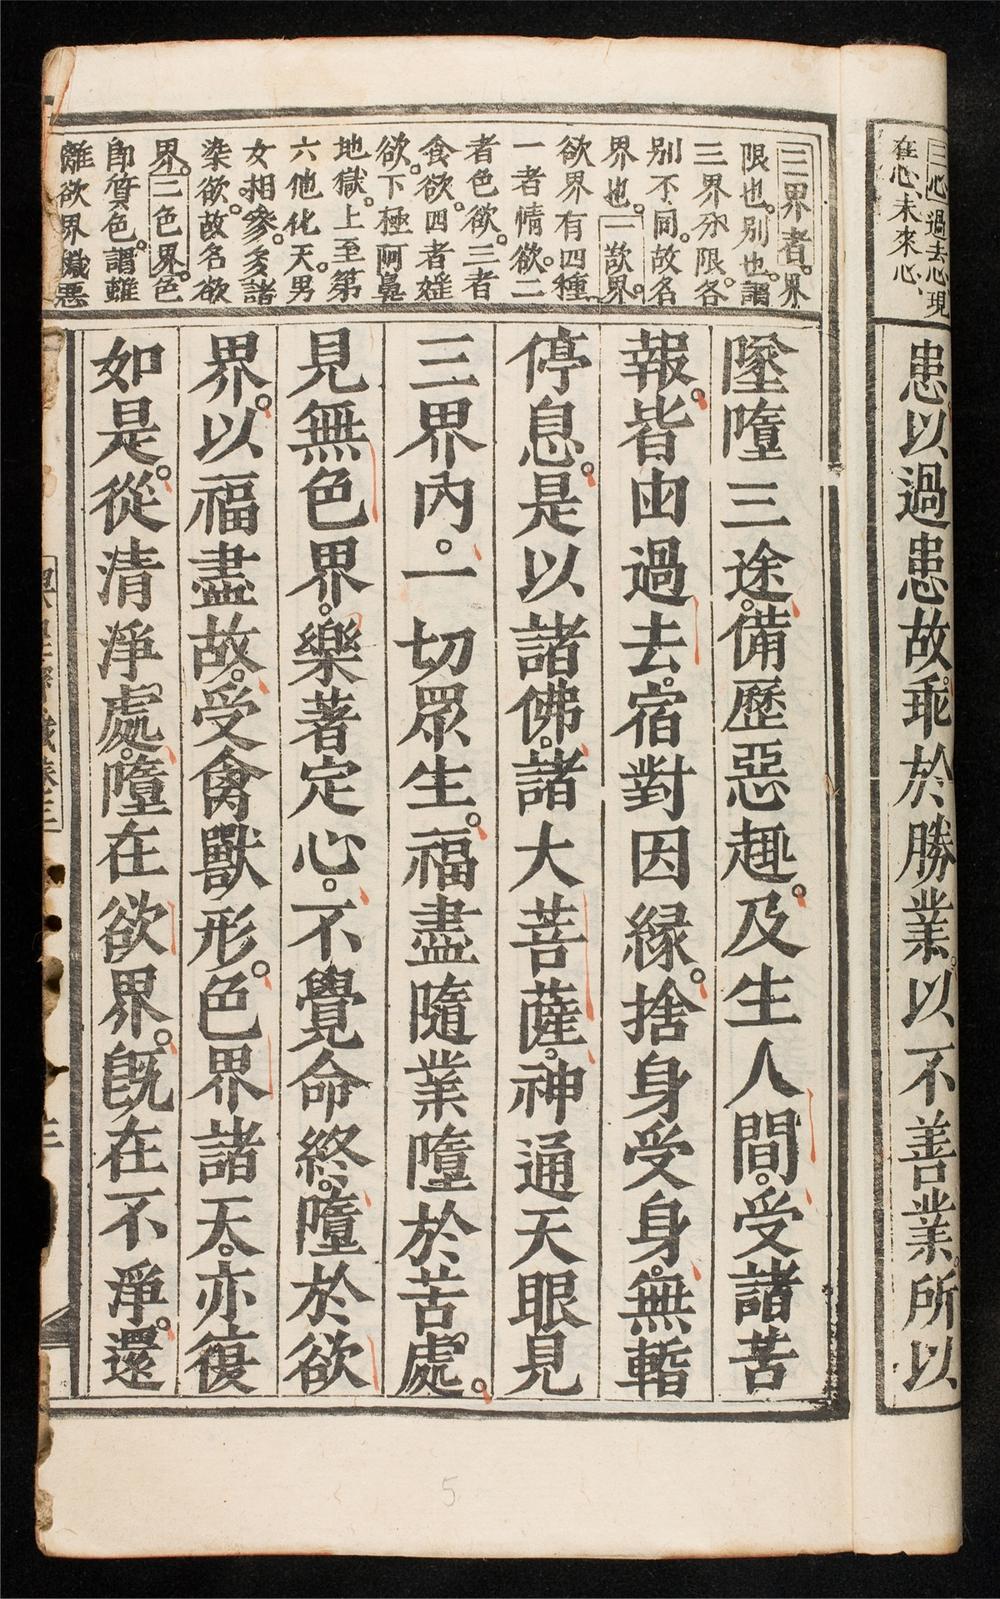 三心過去心現
在心未來心
患以過患故。乖於勝業。以不善業。所以
三界者。界
限也。別也。謂
三界分限。各
別不同。故名
界也。一欲界。
欲界有四種。
一者情欲。二
者色欲。三者
食欲。四者婬
欲。下極阿鼻
地獄。上至第
六他化天。男
女相參。多諸
染欲。故名欲
界。二色界。色
即質色。謂雖
離欲界穢惡
墜墮三途。備歷惡趣。及生人間。受諸苦
報。皆由過去。宿對因緣。捨身受身。無暫
停息。是以諸佛。諸大菩薩。神通天眼見
三界內。一切眾生。福盡隨業墮於苦處。
見無色界。樂著定心。不覺命終。墮於欲
界。以福盡故。受禽獸形。色界諸天。亦復
如是。從清淨處。墮在欲界。既在不淨。還
5